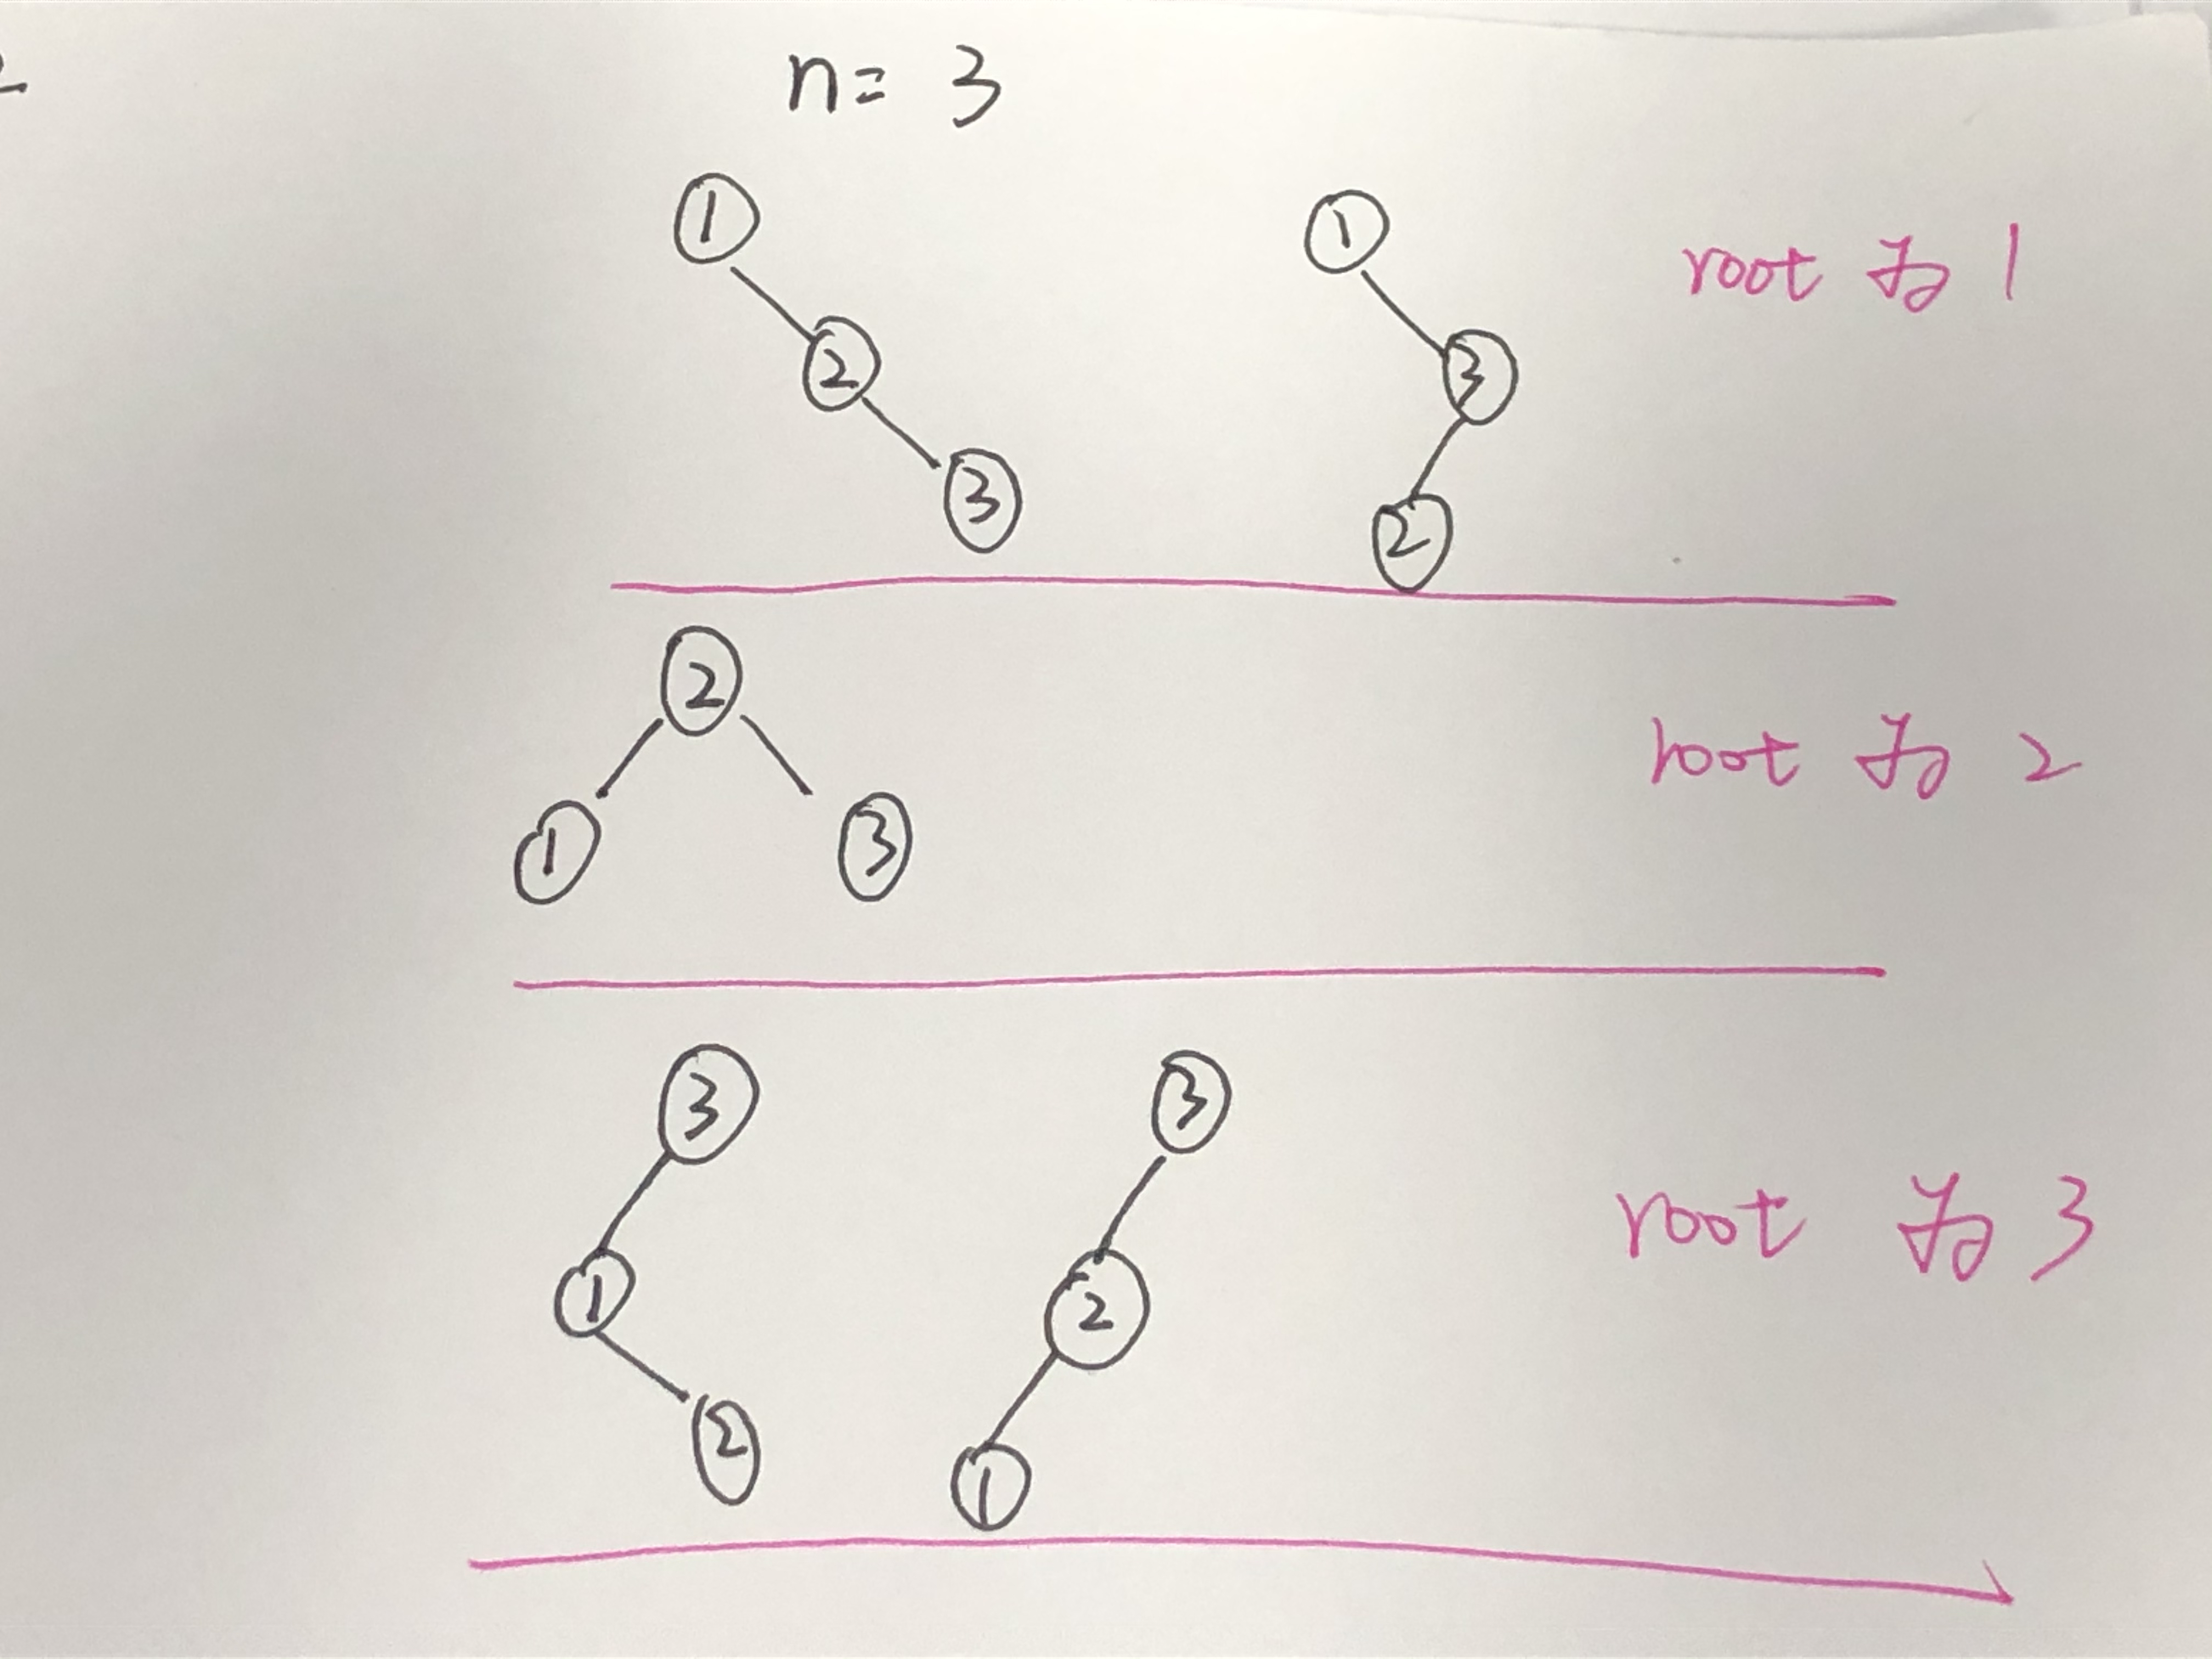 n= 3
① ①
② ③
③ ②
root 为 1
②
① ③
root 为 2
③ ③
① ②
② ①
root 为 3